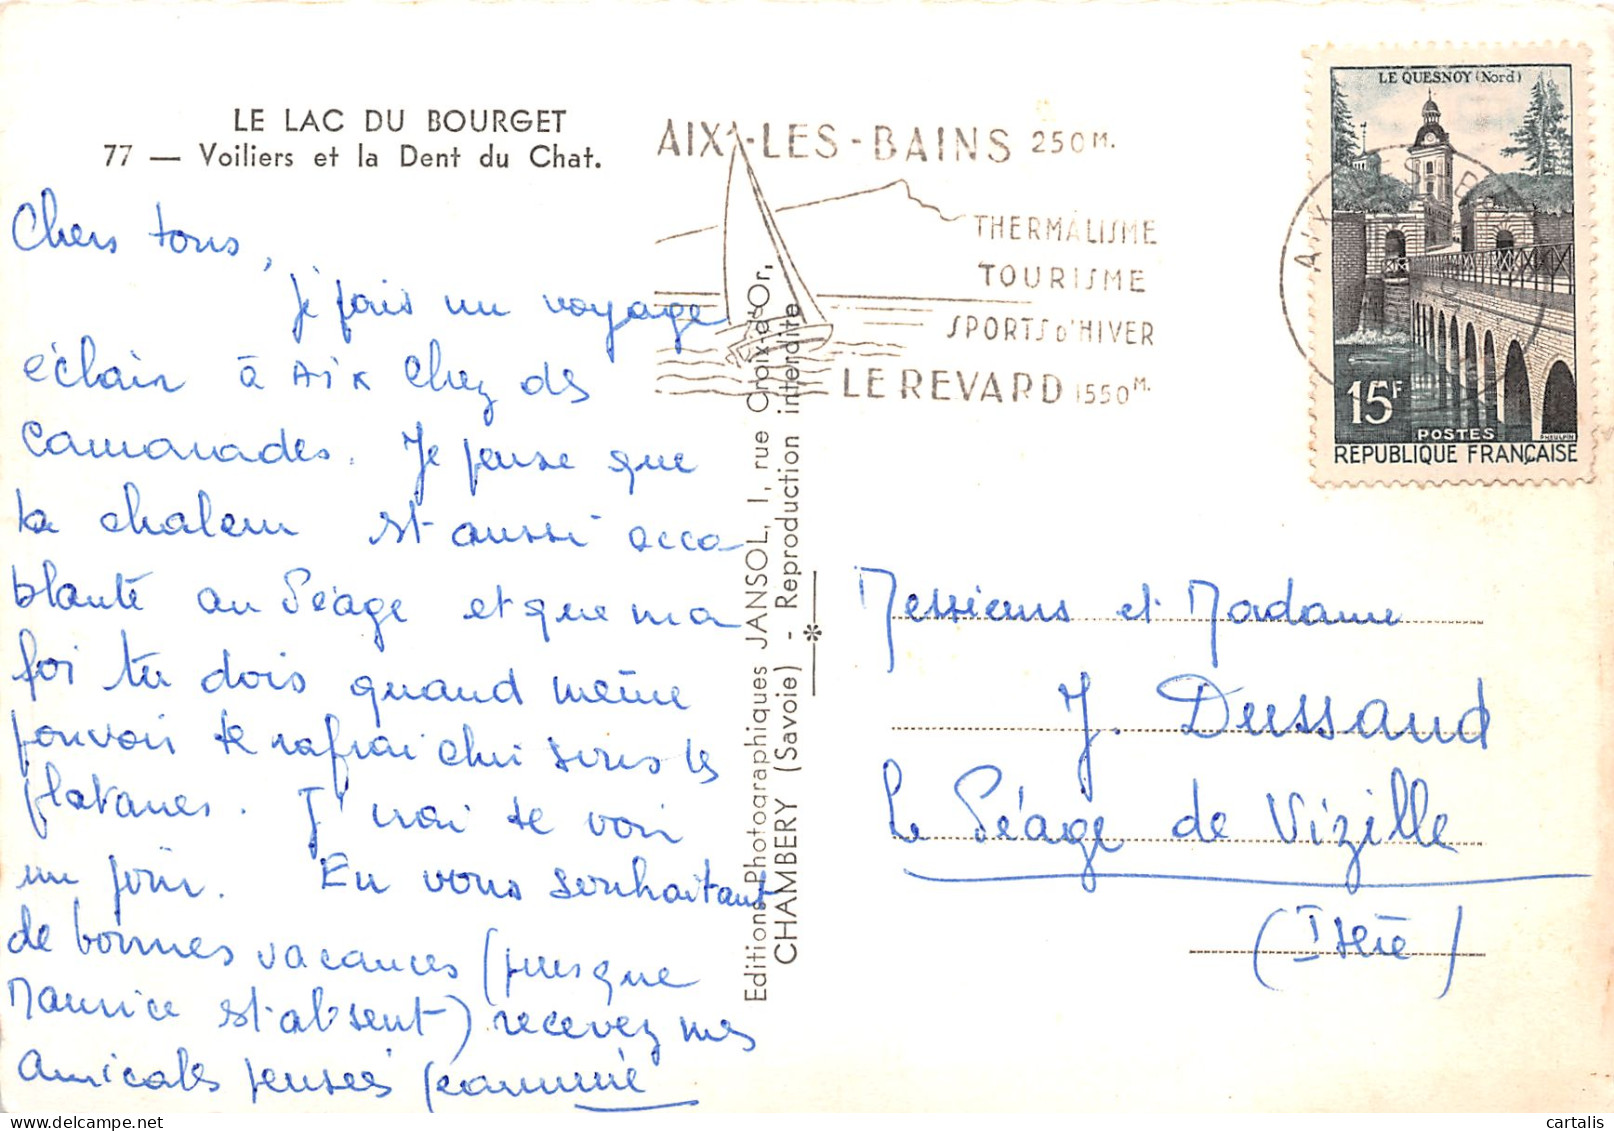 LE LAC DU BOURGET
77 — Voiliers et la Dent du Chat.
Chers tous,
Je fais un voyage
éclair à Aix chez des
camarades. Je pense que
la chaleur est aussi acca-
blante au Péage et que ma
foi tu dois quand même
pouvoir te rafraichir sous les
platanes. J'irai te voir
un jour. En vous souhaitant
de bonnes vacances (puisque
Maurice est absent) recevez mes
amicales pensées
Editions Photographiques JANSOL, 1, rue Croix-d'Or,
CHAMBERY (Savoie) - Reproduction interdite
AIX-LES-BAINS 250M.
THERMALISME
TOURISME
SPORTS D'HIVER
LE REVARD 1550M.
LE QUESNOY (Nord)
15F
POSTES
REPUBLIQUE FRANÇAISE
Messieurs et Madame
J. Dussaud
Le Péage de Vizille
(Isère)
cartalis